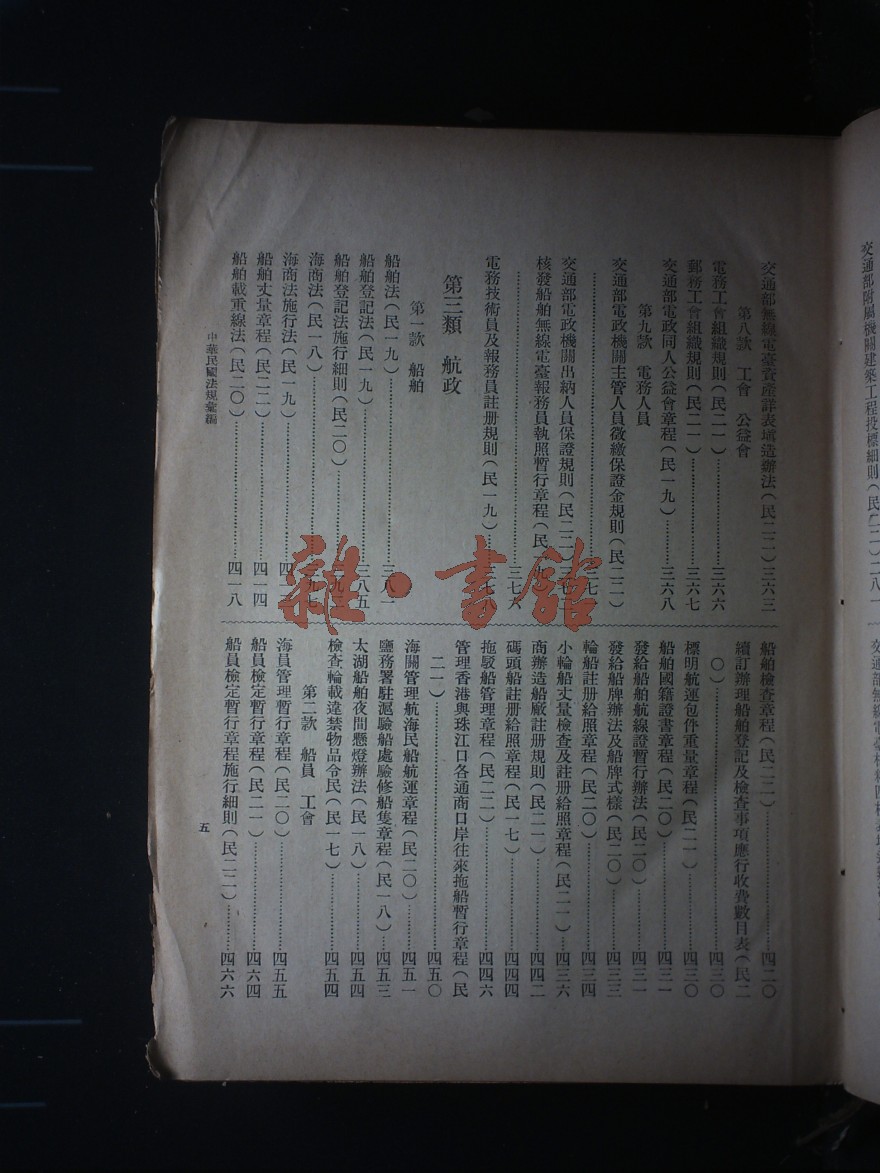 交通部無線電臺資產詳表填造辦法(民二二)……三六三
第八款 工會 公益會
電務工會組織規則(民二一)……三六六
郵務工會組織規則(民二一)……三六七
交通部電政同人公益會章程(民一九)……三六八
第九款 電務人員
交通部電政機關主管人員徵繳保證金規則(民二二)
……三七
交通部電政機關出納人員保證規則(民二二)……三七
核發船舶無線電臺報務員執照暫行章程(民
……三七六
電務技術員及報務員註册規則(民一九)……三七
第三類 航政
第一款 船舶
船舶法(民一九)……三八一
船舶登記法(民一九)……三八五
船舶登記法施行細則(民二〇)……三九
海商法(民一八)……三九
海商法施行法(民一九)……四
船舶丈量章程(民二二)……四一四
船舶載重線法(民二〇)……四一八
船舶檢查章程(民二二)……四二〇
續訂辦理船舶登記及檢查事項應行收費數目表(民二
〇)……四三〇
標明航運包件重量章程(民二一)……四三〇
船舶國籍證書章程(民二〇)……四三一
發給船舶航線證暫行辦法(民二〇)……四三一
發給船牌辦法及船牌式樣(民二〇)……四三三
輪船註册給照章程(民二〇)……四三四
小輪船丈量檢查及註册給照章程(民二一)……四三六
商辦造船廠註册規則(民二一)……四四二
碼頭船註册給照章程(民一七)……四四四
拖駁船管理章程(民二二)……四四六
管理香港與珠江口各通商口岸往來拖船暫行章程(民
二一)……四五〇
海關管理航海民船航運章程(民二〇)……四五一
鹽務署駐滬驗船處驗修船隻章程(民一八)……四五三
太湖船舶夜間懸燈辦法(民一八)……四五四
檢查輪載違禁物品令(民一七)……四五四
第二款 船員 工會
海員管理暫行章程(民二〇)……四五五
船員檢定暫行章程(民二一)……四六四
船員檢定暫行章程施行細則(民二二)……四六六
中華民國法規彙編
五
雜·書館
交通部附屬機關建築工程投標細則(民二一)二八一
交通部無線電臺